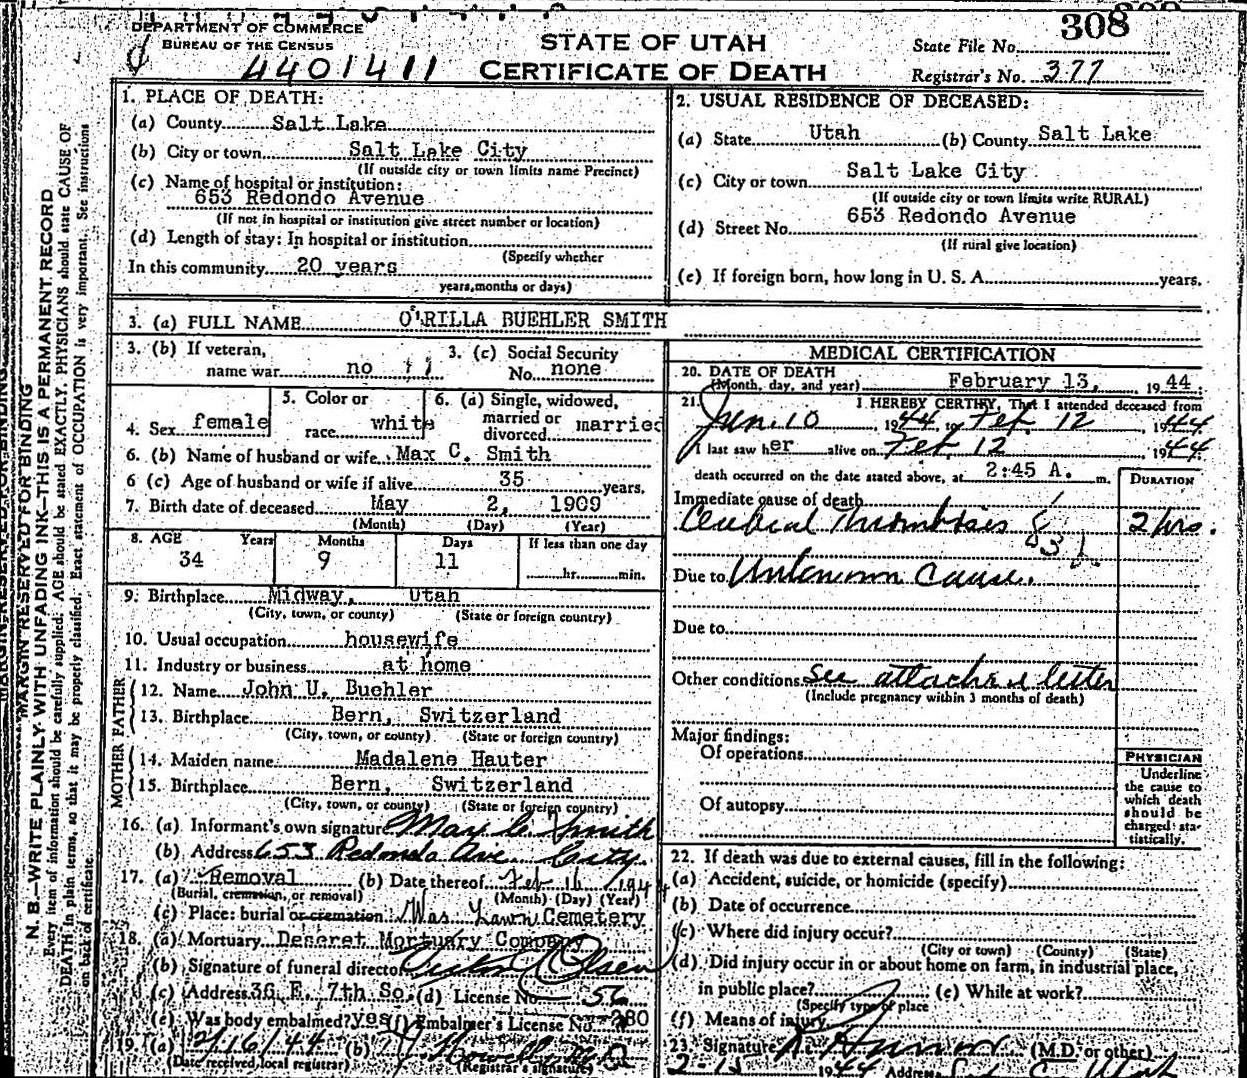 DEPARTMENT OF COMMERCE
BUREAU OF THE CENSUS
4401411
STATE OF UTAH
CERTIFICATE OF DEATH
308
State File No.
Registrar's No. 377
1. PLACE OF DEATH:
(a) County Salt Lake
(b) City or town Salt Lake City
(If outside city or town limits name Precinct)
(c) Name of hospital or institution:
653 Redondo Avenue
(If not in hospital or institution give street number or location)
(d) Length of stay: In hospital or institution
(Specify whether
In this community 20 years
years, months or days)
2. USUAL RESIDENCE OF DECEASED:
(a) State Utah (b) County Salt Lake
(c) City or town Salt Lake City
(If outside city or town limits write RURAL)
653 Redondo Avenue
(d) Street No.
(If rural give location)
(e) If foreign born, how long in U. S. A. years.
3. (a) FULL NAME O'RILLA BUEHLER SMITH
3. (b) If veteran, name war no
3. (c) Social Security No. none
4. Sex female
5. Color or race white
6. (a) Single, widowed, married or divorced married
6. (b) Name of husband or wife Max C. Smith
6 (c) Age of husband or wife if alive 35 years.
7. Birth date of deceased May 2, 1909
(Month) (Day) (Year)
8. AGE Years Months Days If less than one day
34 9 11 hr. min.
9. Birthplace Midway, Utah
(City, town, or county) (State or foreign country)
10. Usual occupation housewife
11. Industry or business at home
FATHER
12. Name John U. Buehler
13. Birthplace Bern, Switzerland
(City, town, or county) (State or foreign country)
MOTHER
14. Maiden name Madalene Hauter
15. Birthplace Bern, Switzerland
(City, town, or county) (State or foreign country)
16. (a) Informant's own signature Max C Smith
(b) Address 653 Redondo Ave. City.
17. (a) Removal (b) Date thereof Feb 16 1944
(Burial, cremation, or removal) (Month) (Day) (Year)
(c) Place: burial or cremation Was. Lawn Cemetery
18. (a) Mortuary Deseret Mortuary Company
(b) Signature of funeral director Olsen
(c) Address 36 E. 7th So. (d) License No 56
(e) Was body embalmed? yes (f) Embalmer's License No 280
19. (a) 2/16/44 (b)
(Date received local registrar) (Registrar's signature)
MEDICAL CERTIFICATION
20. DATE OF DEATH
(Month, day, and year) February 13, 1944.
21. I HEREBY CERTIFY, That I attended deceased from
Jan. 10, 1944, to Feb 12, 1944
I last saw her alive on Feb. 12 1944
death occurred on the date stated above, at 2:45 A. m.
DURATION
Immediate cause of death
Cerebral Thrombosis 2 hrs.
Due to Unknown Cause.
Due to
Other conditions See attached letter
(Include pregnancy within 3 months of death)
Major findings:
Of operations
Of autopsy
PHYSICIAN
Underline
the cause to
which death
should be
charged sta-
tistically.
22. If death was due to external causes, fill in the following:
(a) Accident, suicide, or homicide (specify)
(b) Date of occurrence
(c) Where did injury occur?
(City or town) (County) (State)
(d) Did injury occur in or about home on farm, in industrial place,
in public place? (e) While at work?
(Specify type of place
(f) Means of injury
23. Signature (M.D. or other)
1944 Address
MARGIN RESERVED FOR BINDING
N. B.—WRITE PLAINLY WITH UNFADING INK—THIS IS A PERMANENT RECORD
Every item of information should be carefully supplied. AGE should be stated EXACTLY. PHYSICIANS should state CAUSE OF
DEATH in plain terms, so that it may be properly classified. Exact statement of OCCUPATION is very important. See instructions
on back of certificate.